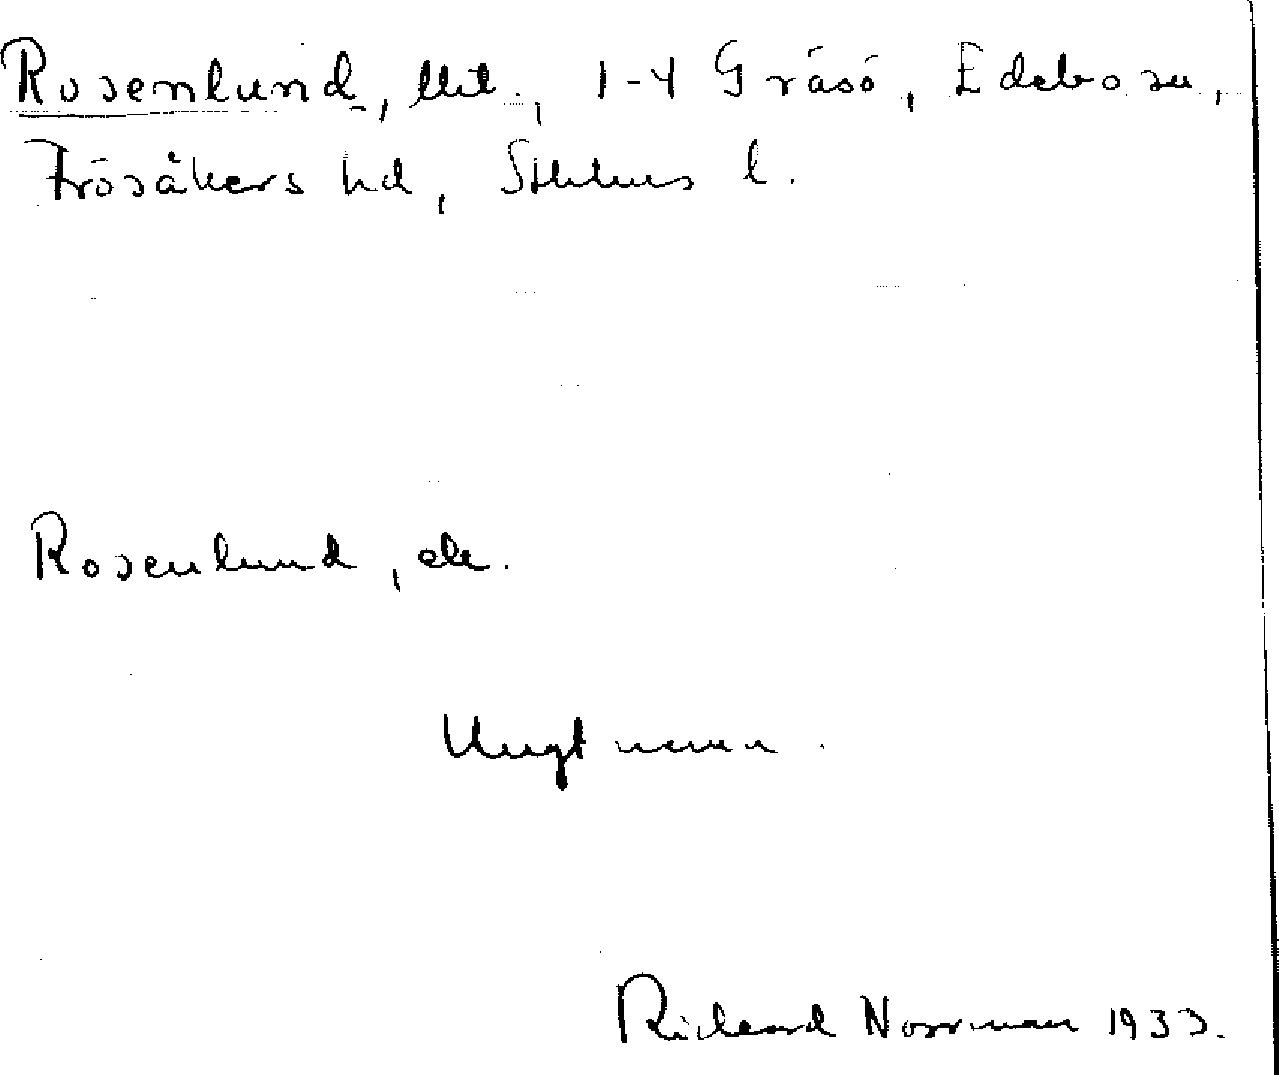 Rosenlund, lht., 1-4 Gräsö, Edebo sn,
Frösåkers hd, Sthlms l.
Rosenlund, ele.
Ungt namn.
Richard Norrman 1933.